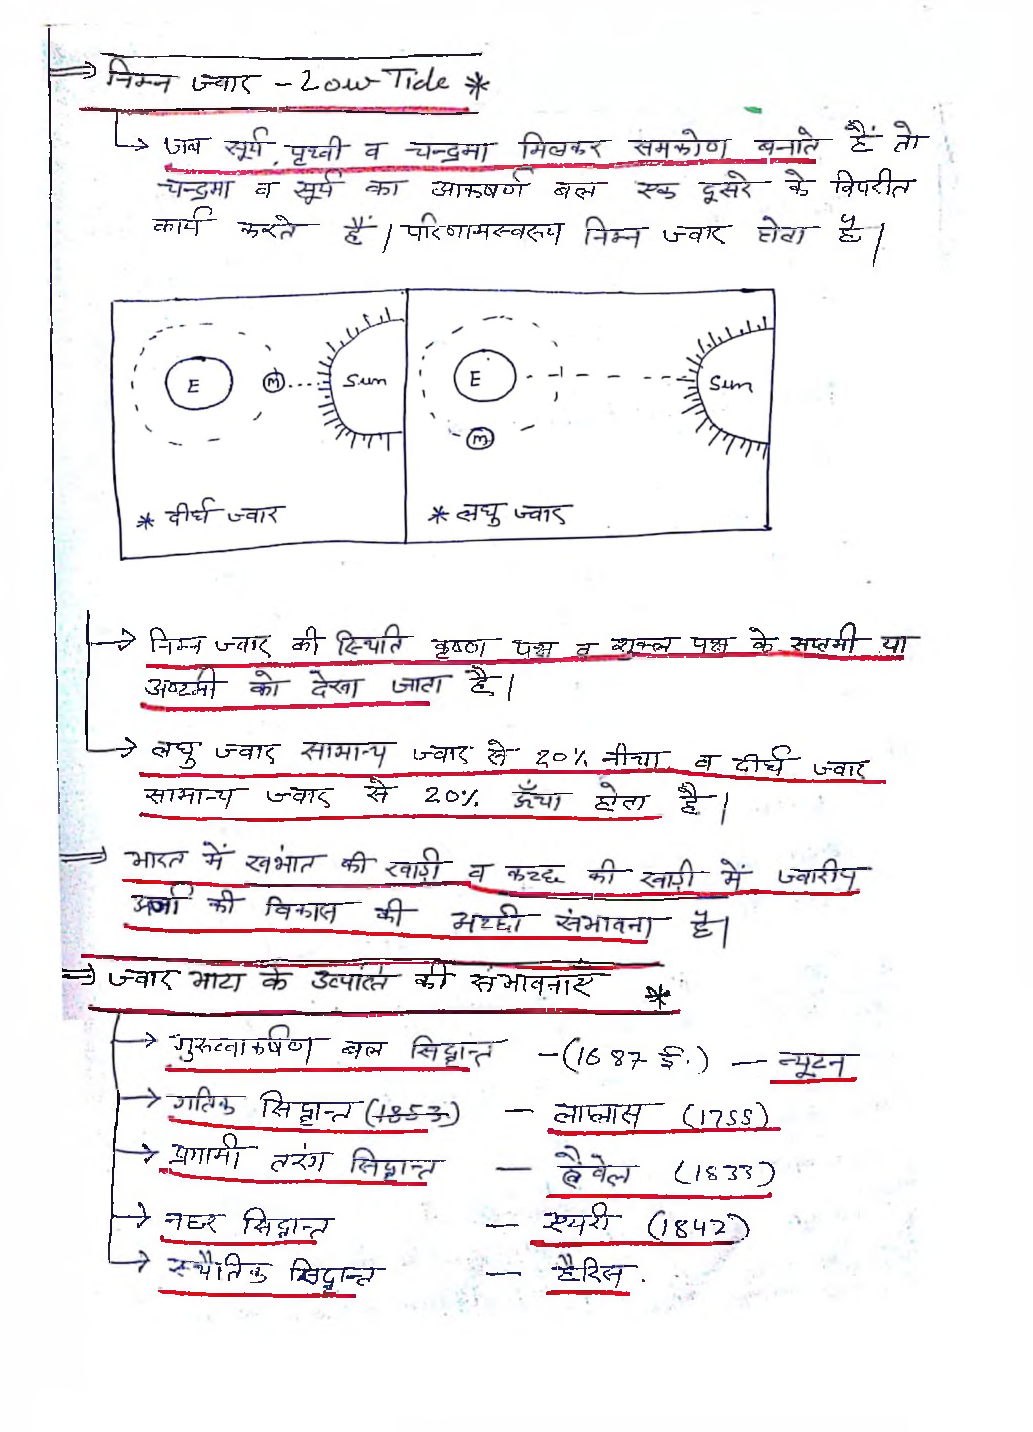 ⇒ निम्न ज्वार - Low Tide *
→ जब सूर्य, पृथ्वी व चन्द्रमा मिलकर समकोण बनाते हैं तो
चन्द्रमा व सूर्य का आकषर्ण बल एक दूसरे के विपरीत
कार्य करते हैं। परिणामस्वरूप निम्न ज्वार होता है।
E M Sun
* दीर्घ ज्वार
E M Sun
* लघु ज्वार
→ निम्न ज्वार की स्थिति कृष्ण पक्ष व शुक्ल पक्ष के सप्तमी या
अष्टमी को देखा जाता है।
→ लघु ज्वार सामान्य ज्वार से 20% नीचा व दीर्घ ज्वार
सामान्य ज्वार से 20% ऊँचा होता है।
⇒ भारत में खंभात की खाड़ी व कच्छ की खाड़ी में ज्वारीय
ऊर्जा की विकास की अच्छी संभावना है।
⇒ ज्वार भाटा के उत्पत्ति की संभावनाएं *
→ गुरुत्वाकर्षण बल सिद्धान्त - (1687 ई.) - न्यूटन
→ गतिक सिद्धान्त (1853) - लाप्लास (1755)
→ प्रगामी तरंग सिद्धान्त - ह्वेवेल (1833)
→ नहर सिद्धान्त - एयरी (1842)
→ स्थैतिक सिद्धान्त - हैरिस.